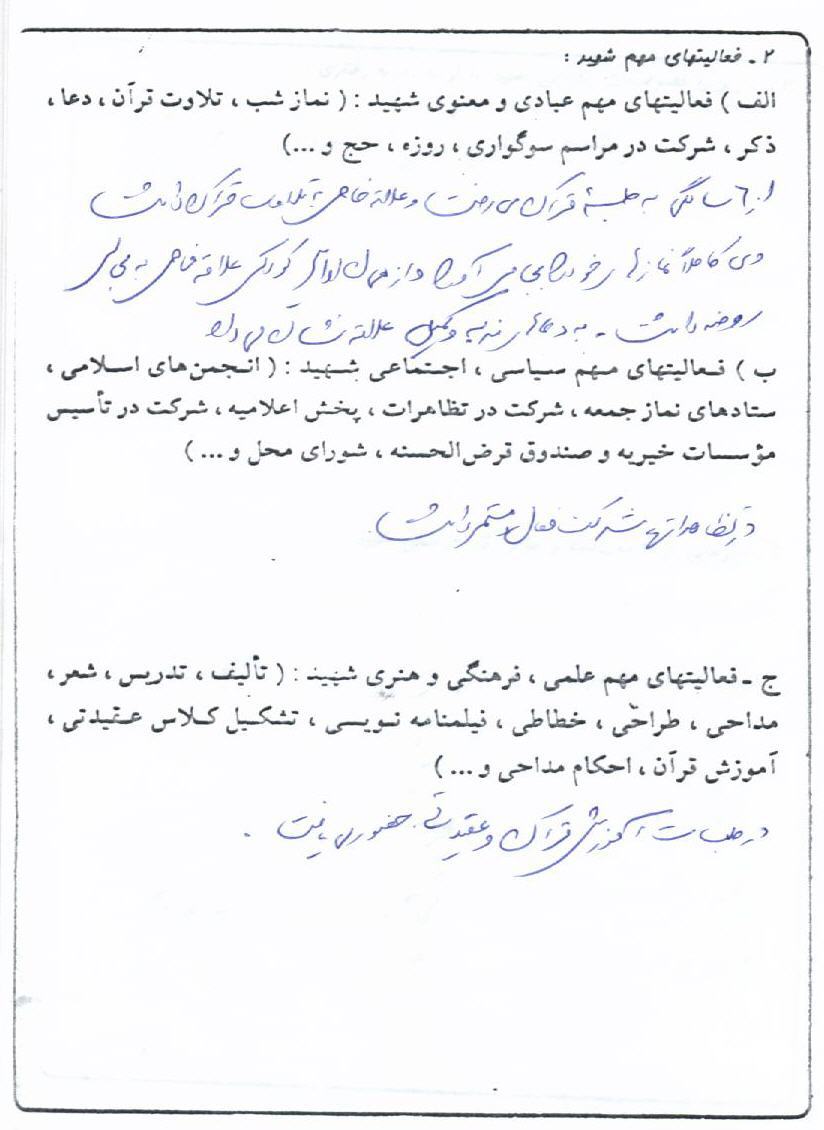 ۲ ـ فعالیتهای مهم شهید :
الف ) فعالیتهای مهم عبادی و معنوی شهید : ( نماز شب ، تلاوت قرآن ، دعا ،
ذکر ، شرکت در مراسم سوگواری ، روزه ، حج و ...)
از ٦ سالگی به جلسهٔ قرآن می رفت و علاقه خاصی به تلاوت قرآن داشت
وی کاملاً نمازهای خود را بجا می آورد و از همان اوائل کودکی علاقه خاصی به مجالس
روضه داشت ـ به دعاهای ندبه و کمیل علاقه نشان می داد
ب ) فعالیتهای مهم سیاسی ، اجتماعی شهید : ( انجمن‌های اسلامی ،
ستادهای نماز جمعه ، شرکت در تظاهرات ، پخش اعلامیه ، شرکت در تأسیس
مؤسسات خیریه و صندوق قرض‌الحسنه ، شورای محل و ... )
در تظاهراتها شرکت فعال و مستمر داشت
ج ـ فعالیتهای مهم علمی ، فرهنگی و هنری شهید : ( تألیف ، تدریس ، شعر ،
مداحی ، طراحی ، خطاطی ، فیلمنامه نویسی ، تشکیل کلاس عقیدتی ،
آموزش قرآن ، احکام مداحی و ... )
در جلسات آموزش قرآن و عقیدتی حضور می یافت .